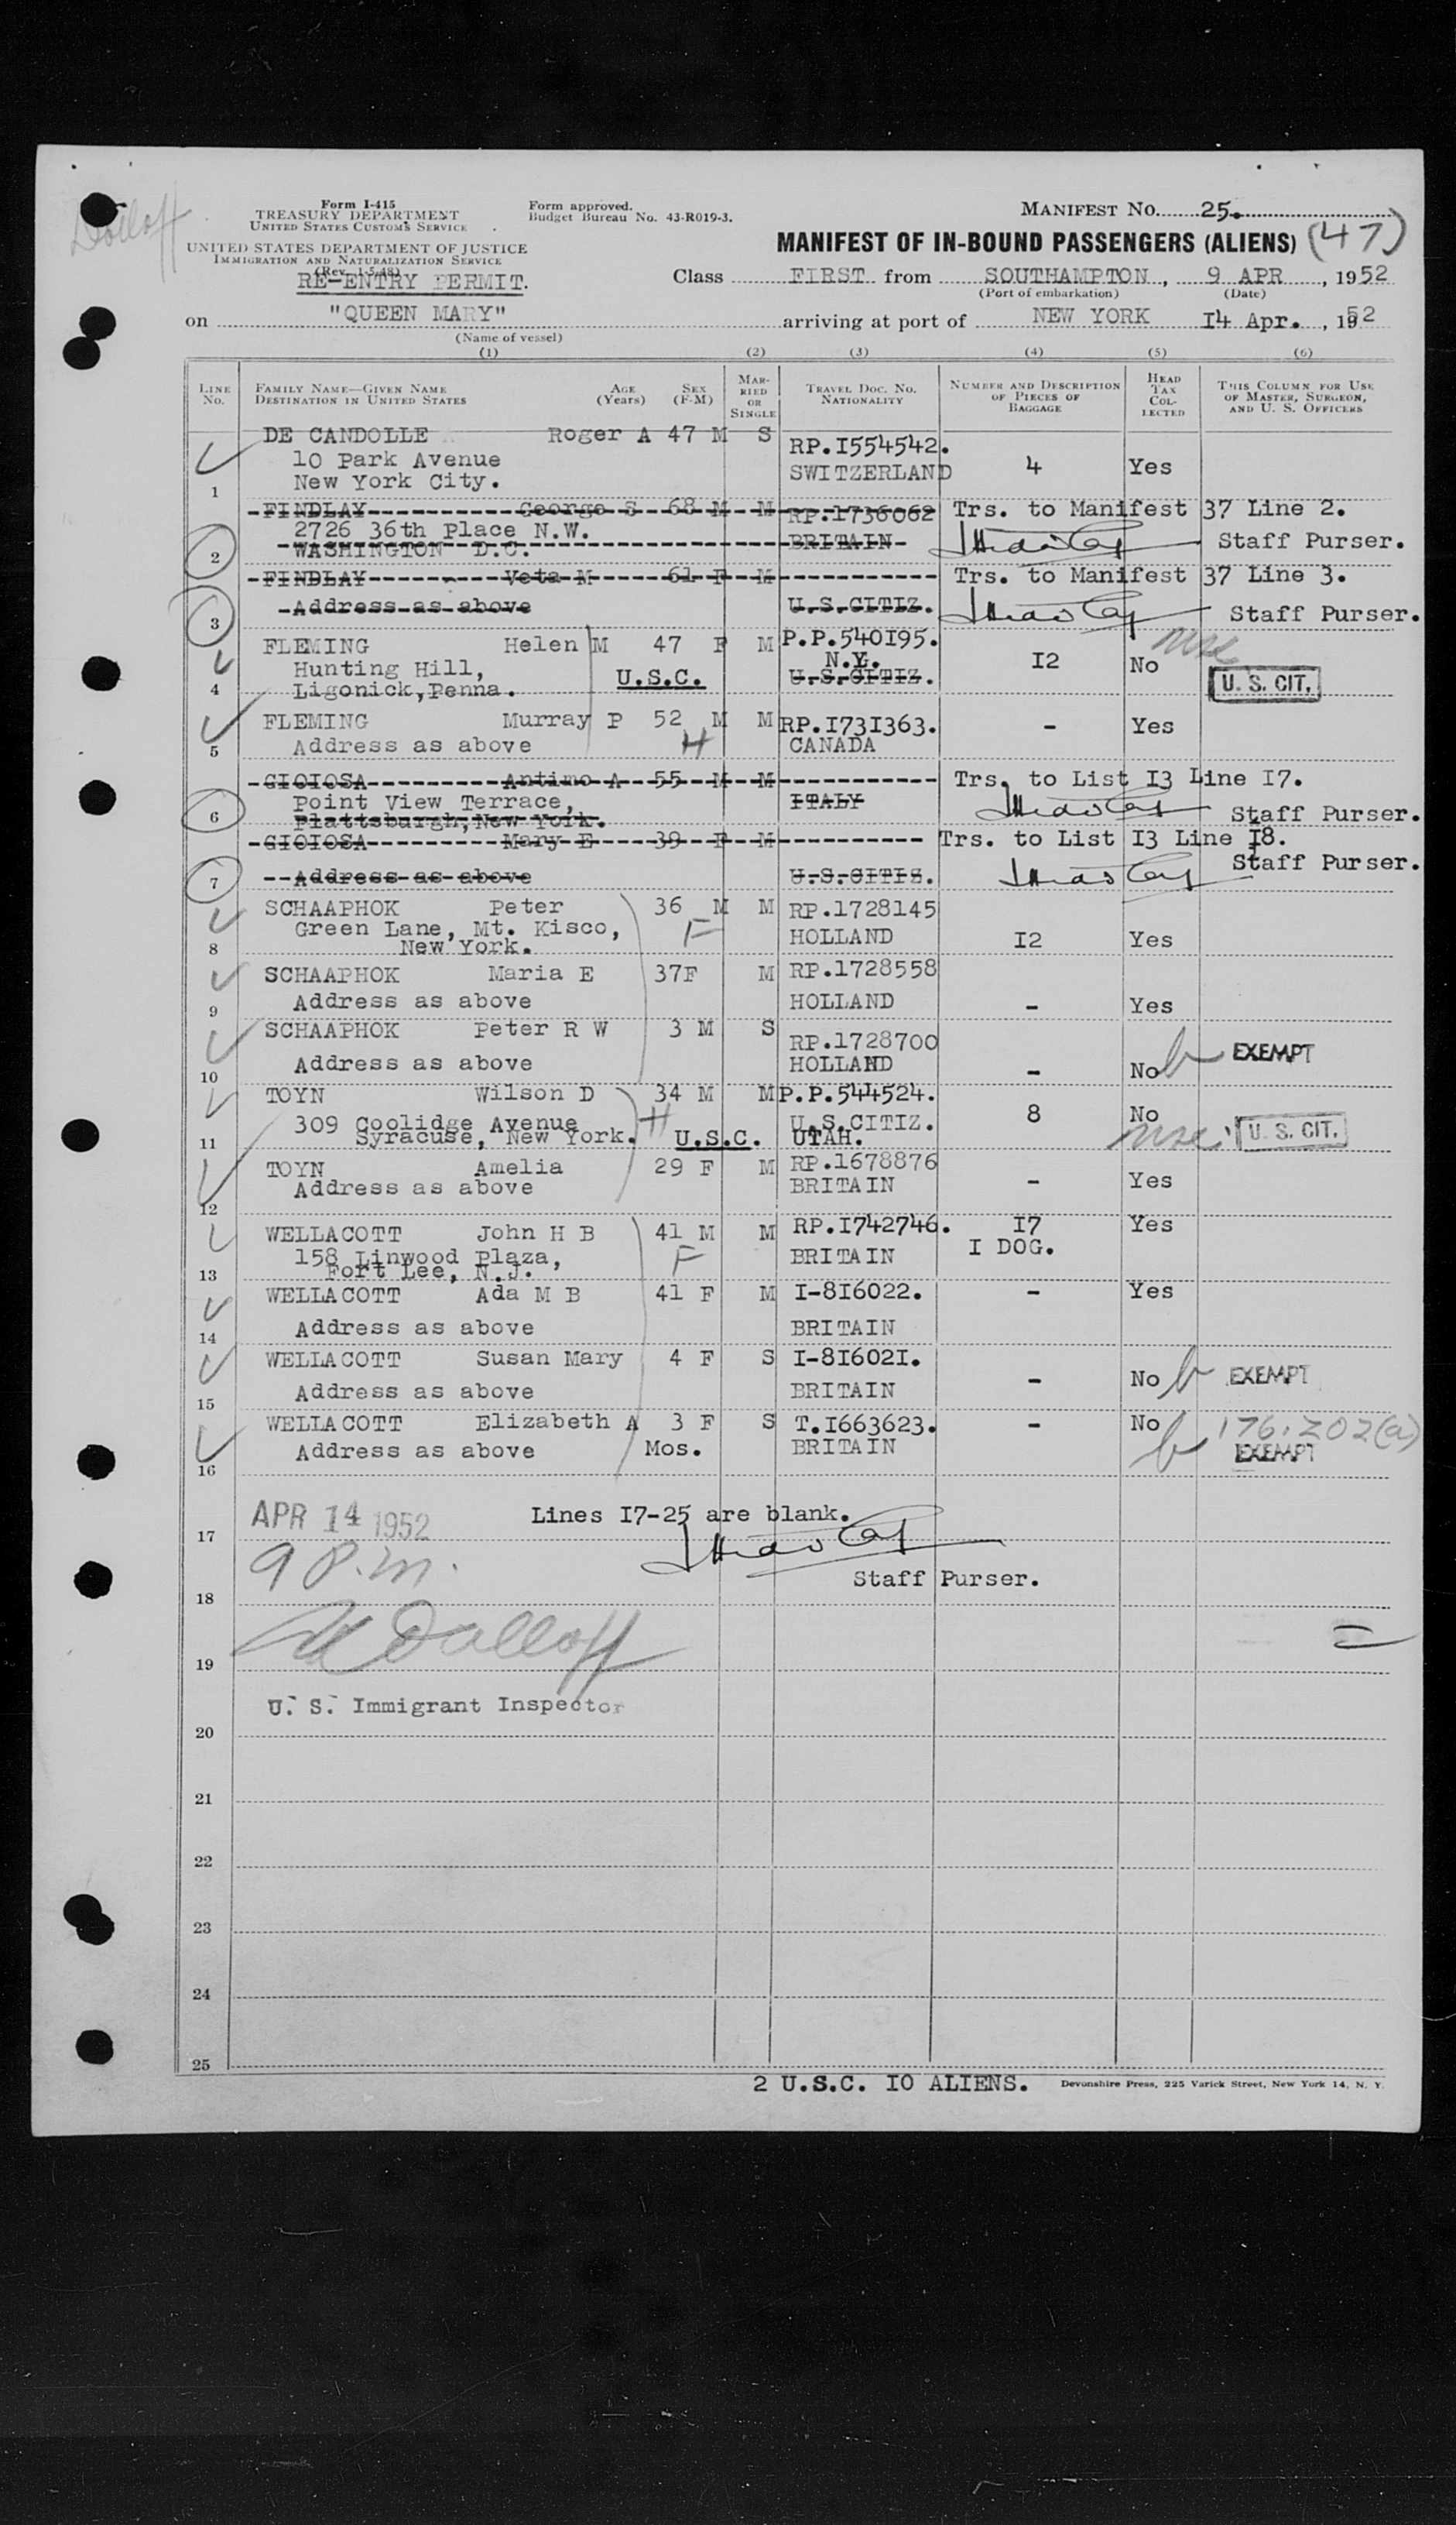 Dolloff
Form I-415
TREASURY DEPARTMENT
UNITED STATES CUSTOMS SERVICE
UNITED STATES DEPARTMENT OF JUSTICE
IMMIGRATION AND NATURALIZATION SERVICE
(Rev. 1-5-48)
RE-ENTRY PERMIT.
Form approved.
Budget Bureau No. 43-R019-3.
MANIFEST NO. 25.
MANIFEST OF IN-BOUND PASSENGERS (ALIENS) (47)
Class FIRST from SOUTHAMPTON, 9 APR, 1952
(Port of embarkation) (Date)
on "QUEEN MARY" arriving at port of NEW YORK 14 Apr., 1952
(Name of vessel)
(1) (2) (3) (4) (5) (6)
LINE NO. FAMILY NAME—GIVEN NAME DESTINATION IN UNITED STATES AGE (Years) SEX (F-M) MARRIED OR SINGLE TRAVEL DOC. NO. NATIONALITY NUMBER AND DESCRIPTION OF PIECES OF BAGGAGE HEAD TAX COLLECTED THIS COLUMN FOR USE OF MASTER, SURGEON, AND U. S. OFFICERS
DE CANDOLLE Roger A 47 M S RP.I554542.
10 Park Avenue SWITZERLAND 4 Yes
New York City.
1
FINDLAY George S 68 M M RP.1736062 Trs. to Manifest 37 Line 2.
2726 36th Place N.W.
WASHINGTON D.C. BRITAIN Staff Purser.
2
FINDLAY Veta M 61 F M Trs. to Manifest 37 Line 3.
Address as above U.S.CITIZ. Staff Purser.
3
FLEMING Helen M 47 F M P.P.540195.
Hunting Hill, N.Y. I2 No
Ligonick, Penna. U.S.C. U.S.CITIZ. U. S. CIT.
4
FLEMING Murray P 52 M M RP.I73I363. - Yes
Address as above H CANADA
5
GIOIOSA Antimo A 55 M M Trs. to List I3 Line I7.
Point View Terrace, ITALY
Plattsburgh, New York. Staff Purser.
6
GIOIOSA Mary E 39 F M Trs. to List I3 Line I8.
Address as above U.S.CITIS. Staff Purser.
7
SCHAAPHOK Peter 36 M M RP.1728145
Green Lane, Mt. Kisco, F HOLLAND I2 Yes
New York.
8
SCHAAPHOK Maria E 37F M RP.1728558
Address as above HOLLAND - Yes
9
SCHAAPHOK Peter R W 3 M S RP.1728700
Address as above HOLLAND - No EXEMPT
10
TOYN Wilson D 34 M M P.P.544524.
309 Coolidge Avenue H U.S.CITIZ. 8 No
Syracuse, New York. U.S.C. UTAH. U. S. CIT.
11
TOYN Amelia 29 F M RP.1678876
Address as above BRITAIN - Yes
12
WELLACOTT John H B 41 M M RP.I742746. I7 Yes
158 Linwood Plaza, F BRITAIN I DOG.
Fort Lee, N.J.
13
WELLACOTT Ada M B 41 F M I-8I6022. - Yes
Address as above BRITAIN
14
WELLACOTT Susan Mary 4 F S I-8I602I.
Address as above BRITAIN - No EXEMPT
15
WELLACOTT Elizabeth A 3 F S T.I663623. - No 176.202(a)
Address as above Mos. BRITAIN EXEMPT
16
APR 14 1952 Lines I7-25 are blank.
17
9 P.m.
Staff Purser.
18
Dolloff
19
U. S. Immigrant Inspector
20
21
22
23
24
25
2 U.S.C. IO ALIENS. Devonshire Press, 225 Varick Street, New York 14, N. Y.